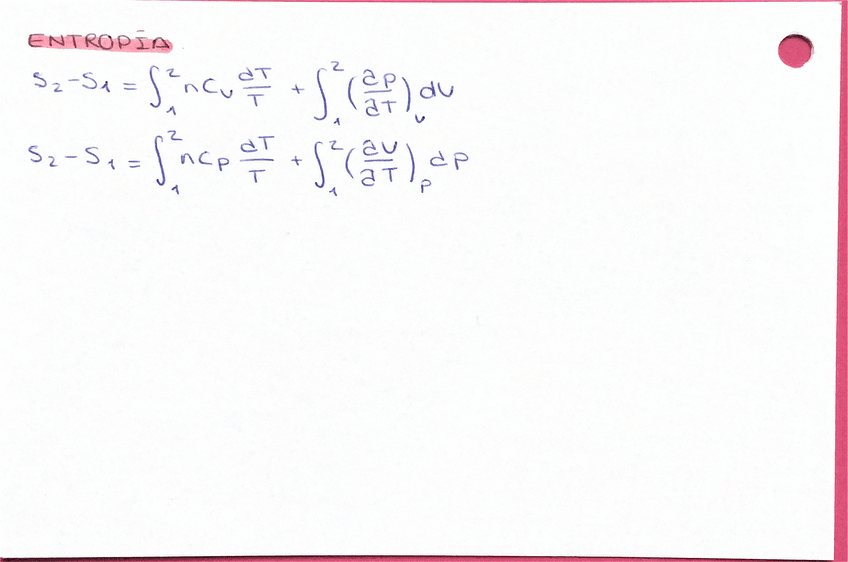 ENTROPÍA
S₂-S₁ = ∫₁² nCᵥ dT/T + ∫₁² (∂P/∂T)ᵥ dV
S₂-S₁ = ∫₁² nCₚ dT/T + ∫₁² (∂V/∂T)ₚ dP